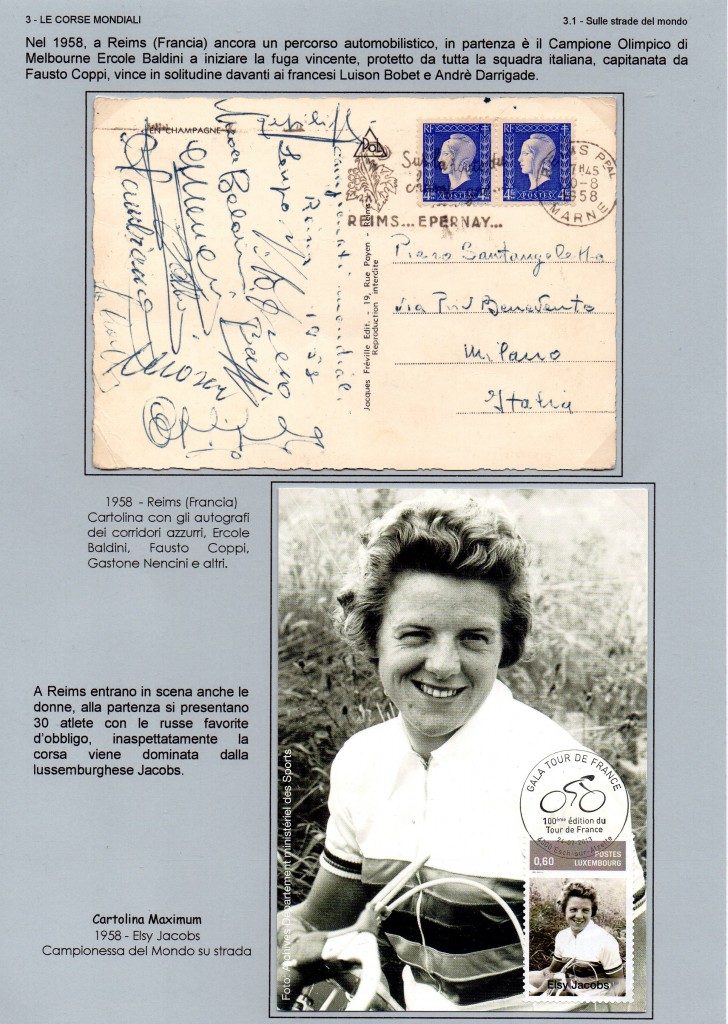 3 - LE CORSE MONDIALI
3.1 - Sulle strade del mondo
Nel 1958, a Reims (Francia) ancora un percorso automobilistico, in partenza è il Campione Olimpico di
Melbourne Ercole Baldini a iniziare la fuga vincente, protetto da tutta la squadra italiana, capitanata da
Fausto Coppi, vince in solitudine davanti ai francesi Luison Bobet e Andrè Darrigade.
EN CHAMPAGNE
Reims 1958
Jacques Fréville Edit. - 19, Rue Payen - Reims
Reproduction interdite
RF
4F
POSTES
RF
4F
POSTES
REIMS PPAL
17H45
1958
MARNE
REIMS...EPERNAY...
Piero Santangeletta
Via Pri Benevento
Milano
Italia
1958 - Reims (Francia)
Cartolina con gli autografi
dei corridori azzurri, Ercole
Baldini, Fausto Coppi,
Gastone Nencini e altri.
A Reims entrano in scena anche le
donne, alla partenza si presentano
30 atlete con le russe favorite
d'obbligo, inaspettatamente la
corsa viene dominata dalla
lussemburghese Jacobs.
Cartolina Maximum
1958 - Elsy Jacobs
Campionessa del Mondo su strada
Foto: Archives Département ministériel des Sports
GALA TOUR DE FRANCE
100ième édition du
Tour de France
Esch-sur-Alzette
0,60
POSTES
LUXEMBOURG
Elsy Jacobs